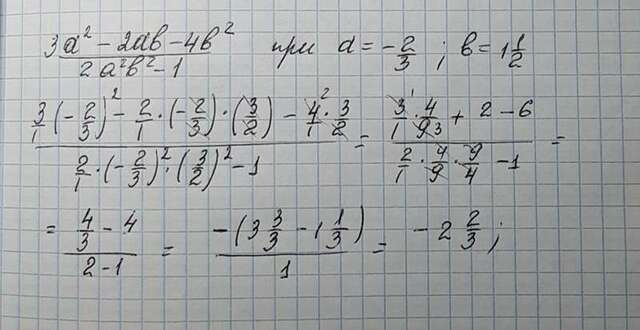 (3a² − 2ab − 4b²)/(2a²b² − 1) при a = −2/3 ; b = 1 1/2
(3/1(−2/3)² − 2/1·(−2/3)·(3/2) − 4/1·3/2)/(2/1·(−2/3)²·(3/2)² − 1) = (3/1·4/9 + 2 − 6)/(2/1·4/9·9/4 − 1) =
= (4/3 − 4)/(2 − 1) = −(3 3/3 − 1 1/3)/1 = −2 2/3;